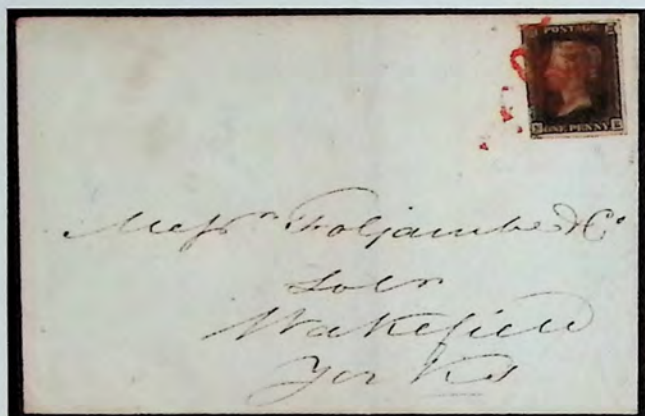 POSTAGE
ONE PENNY
Messrs Foljambe & Co
Solrs
Wakefield
Yorks